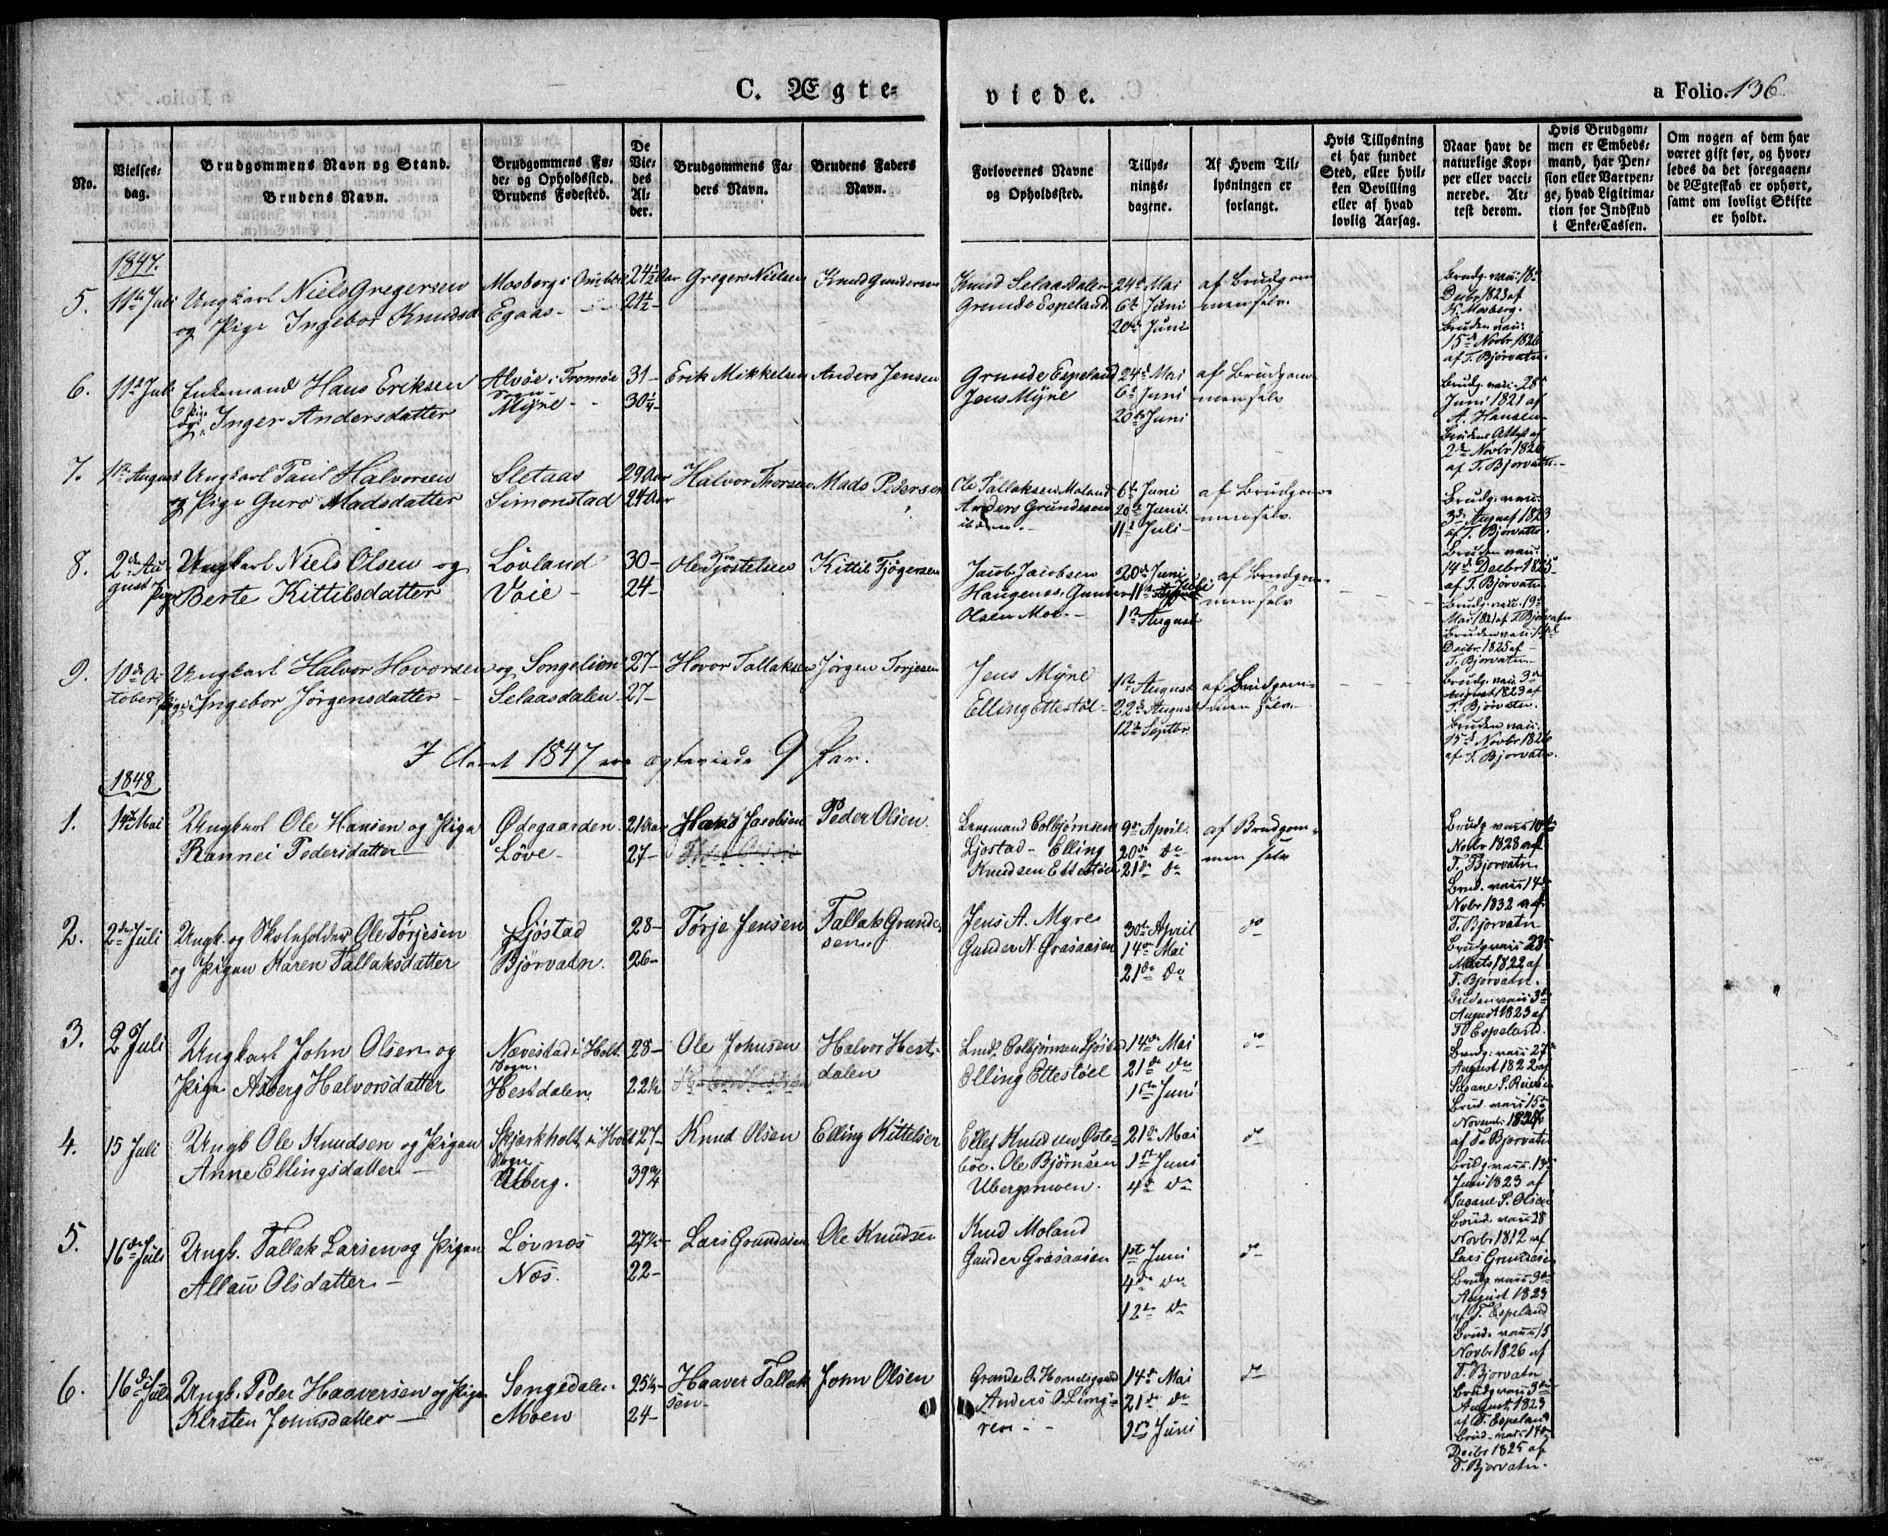 C. Ægte=
viede.
a Folio. 136
No.
Vielses=
dag.
Brudgommens Navn og Stand.
Brudens Navn.
Brudgommens Fø=
de= og Opholdssted.
Brudens Fødested.
De
Vie=
des
Al=
der.
Brudgommens Fa=
ders Navn.
Brudens Faders
Navn.
Forlovernes Navne
og Opholdssted.
Tillys=
nings=
dagene.
Af Hvem Til=
lysningen er
forlangt.
Hvis Tillysning
ei har fundet
Sted, eller hvil=
ken Bevilling
eller af hvad
lovlig Aarsag.
Naar havt de
naturlige Kop=
per eller vacci=
nerede. At=
test derom.
Hvis Brudgom=
men er Embeds=
mand, har Pen=
sion eller Vartpen=
ge, hvad Ligitima=
tion for Indskud
i Enke=Cassen.
Om nogen af dem har
været gift før, og hvor=
ledes da det foregaaen=
de Ægteskab er ophørt,
samt om lovligt Skifte
er holdt.
1847.
5. 11te Juli Ungkarl Niels Gregersen
og Pige Ingebor Knudsd
Mosberg i
Egaas
24½ Aar
21½
Gregers Nielsen
Knud Gundersen
Knud Selaasdalen
Grunde Espeland
24de Mai
6te Juni
20de Juni
af Brudgom=
men selv.
Brudg. vacc: 18de
Decbr 1823 af
K. Mosberg.
Bruden vacc:
15de Novbr 1826
af T. Bjorvatn.
6. 11te Juli Enkemand Hans Eriksen
og Pige Inger Andersdatter
Alvøe i Tromøe
Sogn
Myre
31
30¼
Erik Mikkelsen
Anders Jensen
Grunde Espeland
Jens Myre
24de Mai
6te Juni
20de Juni
af Brudgom=
men selv
Brudg. vacc. 28de
Juni 1821 af
A. Hansen
Brudens Attest af
2den Novbr 1826
af T. Bjorvatn.
7. 1ste August Ungkarl Paul Halvorsen
og Pige Guro Madsdatter
Sletaas
Simonstad
29 Aar
24 Aar
Halvor Thorsen
Mads Pedersen
Ole Tallaksen Moland
Anders Grundesen
ibdem
6te Juni
20de Juni
11te Juli
af Brudgom=
men selv.
Brudg. vacc:
3de August 1823
af T. Bjorvatn.
Bruden vacc:
14de Decbr 1825
af T. Bjorvatn.
8. 2den Au
gust Ungkarl Niels Olsen og
Pige Berte Kittilsdatter
Løvland
Voie
30
24
Ole Gjøstelsen
Kittil Fjøgersen
Jacob Jacobsen
Haugenes. Gunder
Olsen Moe
20de Juni
11te Juli
1ste August
af Brudgom=
men selv
Brudg. vacc: 19de
Mai 1821 af T. Bjorvatn
Bruden vacc: 14de
Decbr. 1825 af
T. Bjorvatn.
9. 10de Oc
tober Ungkarl Halvor Hovorsen og
Pige Ingebor Jørgensdatter
Songelien
Selaasdalen
27
27
Hovor Tallaksen
Jörgen Torjesen
Jens Myre
Elling Ettestøl
1ste August
22de August
12te Septbr.
af Brudgom=
men selv
Brudg. vacc: 3de
August 1823 af
T. Bjorvatn.
Bruden vacc:
15de Novbr 1826
af T. Bjorvatn.
I Aaret 1847 ere ægteviede 9 Par.
1848
1. 14de Mai Ungkarl Ole Hansen og Pige
Rannei Pedersdatter
Ødegaarden
Løve
21 Aar
27
Hans Jacobsen
Peder Olsen
Peder Olsen.
Leermand Colbjørnsen
Ljøstad. Elling
Knudsen Ettestøel
9de April
20de do
21de do
af Brudgom=
men selv
Brudg. vacc: 10de
Novbr 1828 af
T. Bjorvatn
Brud. vacc: 14de
Novbr 1832 af
T. Bjorvatn
2. 2den Juli Ungk. og Skoleholder Ole Tørjesen
og Pigen Karen Tallaksdatter
Ljøstad
Bjørvatn.
28
26
Tørje Jensen
Tallak Grunde=
sen.
Jens A. Myre
Gunder N. Grasaasen
30te April
14de Mai
21de do
do
Brudg vacc 28de
Marts 1822 af
T. Bjorvatn.
Bruden vacc 3de
August 1823 af
T. Espeland.
3. 2 Juli Ungkarl John Olsen og
Pige Asberg Halvorsdatter
Nævestad i Holt
Sogn.
Hestdalen
28
22½
Ole Johnsen
Halvor Hest=
dalen
Colbjørnsen Ljøstad
Elling Ettestøel
14de Mai
21de do
1ste Juni
do
Brudg. vacc: 27de
August 1822 af
Susane S. Reiersen
Brud. vacc: 15de
Novemb. 1827
af T. Bjorvatn
4. 15 Juli Ungk Ole Knudsen og Pigen
Anne Ellingsdatter
Skjærkholt, i Holt
Sogn
Ubberg.
27
39¾
Knud Olsen
Elling Kittelsen
Ellef Knudsen Øste=
bøe. Ole Bjørnsen
Ubergsmoen.
21de Mai
1ste Juni
4de do
do
Brudg. vacc. 13de
Juni 1823 af
Susane S. Olsen
Brud. vacc: 28
Novbr 1812 af
Lars Grundesen
5. 16de Juli Ungk. Tallak Larsen og Pigen
Allau Olsdatter
Løvnes
Nes.
27½
22
Lars Grundesen
Ole Knudsen
Knud Moland
Gunder Grasaasen
1ste Juni
4de do
12te do
do
Brudg vacc 3de
August 1823
af T. Espeland
Brud. vacc 15
Novbr 1826 af
T. Bjorvatn
6. 16de Juli Ungk. Peder Haaversen og Pigen
Kirsten Johnsdatter
Songedalen
Moen
25½
24
Haaver Tallak
sen
John Olsen
Grunde O.
Anders O. Ling=
rem
14de Mai
21de do
1ste Juni
do
Brudg vacc 3de
August 1823
af T. Espeland
Brud. vacc: 14de
Decbr 1825 af
T. Bjorvatn.